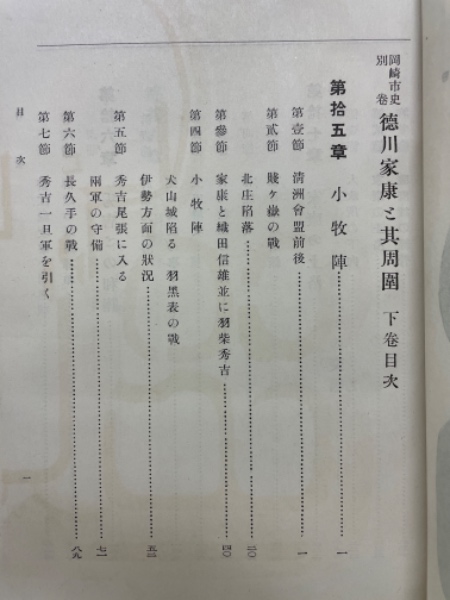 岡崎市史
別巻
德川家康と其周圍 下卷目次
第拾五章 小牧陣……一
第壹節 淸洲會盟前後……一
第貳節 賤ケ嶽の戰
北庄陷落……二〇
第參節 家康と織田信雄並に羽柴秀吉……四〇
第四節 小牧陣
犬山城陷る 羽黑表の戰
伊勢方面の狀況……五二
第五節 秀吉尾張に入る
兩軍の守備……七一
第六節 長久手の戰……八九
第七節 秀吉一旦軍を引く
目次
一